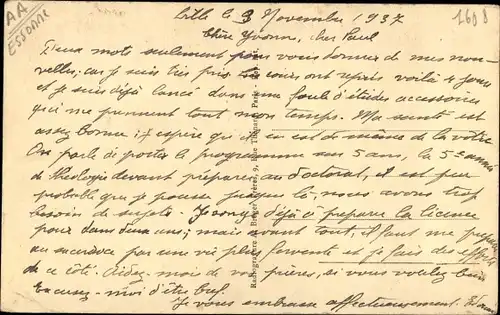 AA
ESSONNE
Lille le 3 Novembre 1937
1608
Chère Yvonne, cher Paul
Deux mots seulement pour vous donner de mes nou-
velles; car je suis très pris les cours ont repris voilà 4 jours
et je suis déjà lancé dans une foule d'études accessoires
qui me prennent tout mon temps. Ma santé est
assez bonne; j'espère qu'il en est de même de la vôtre
On parle de porter le programme sur 5 ans, la 5e année
de théologie devant préparer au doctorat, il est peu
probable que je pousse jusque là, nous avons trop
besoin de sujets. Je songe déjà à préparer la licence
pour dans deux ans; mais avant tout, il faut me préparer
au sacerdoce par une vie plus fervente et je fais des efforts
de ce côté. Aidez-moi de vos prières, si vous voulez bien
Excusez-moi d'être bref.
Je vous embrasse affectueusement.